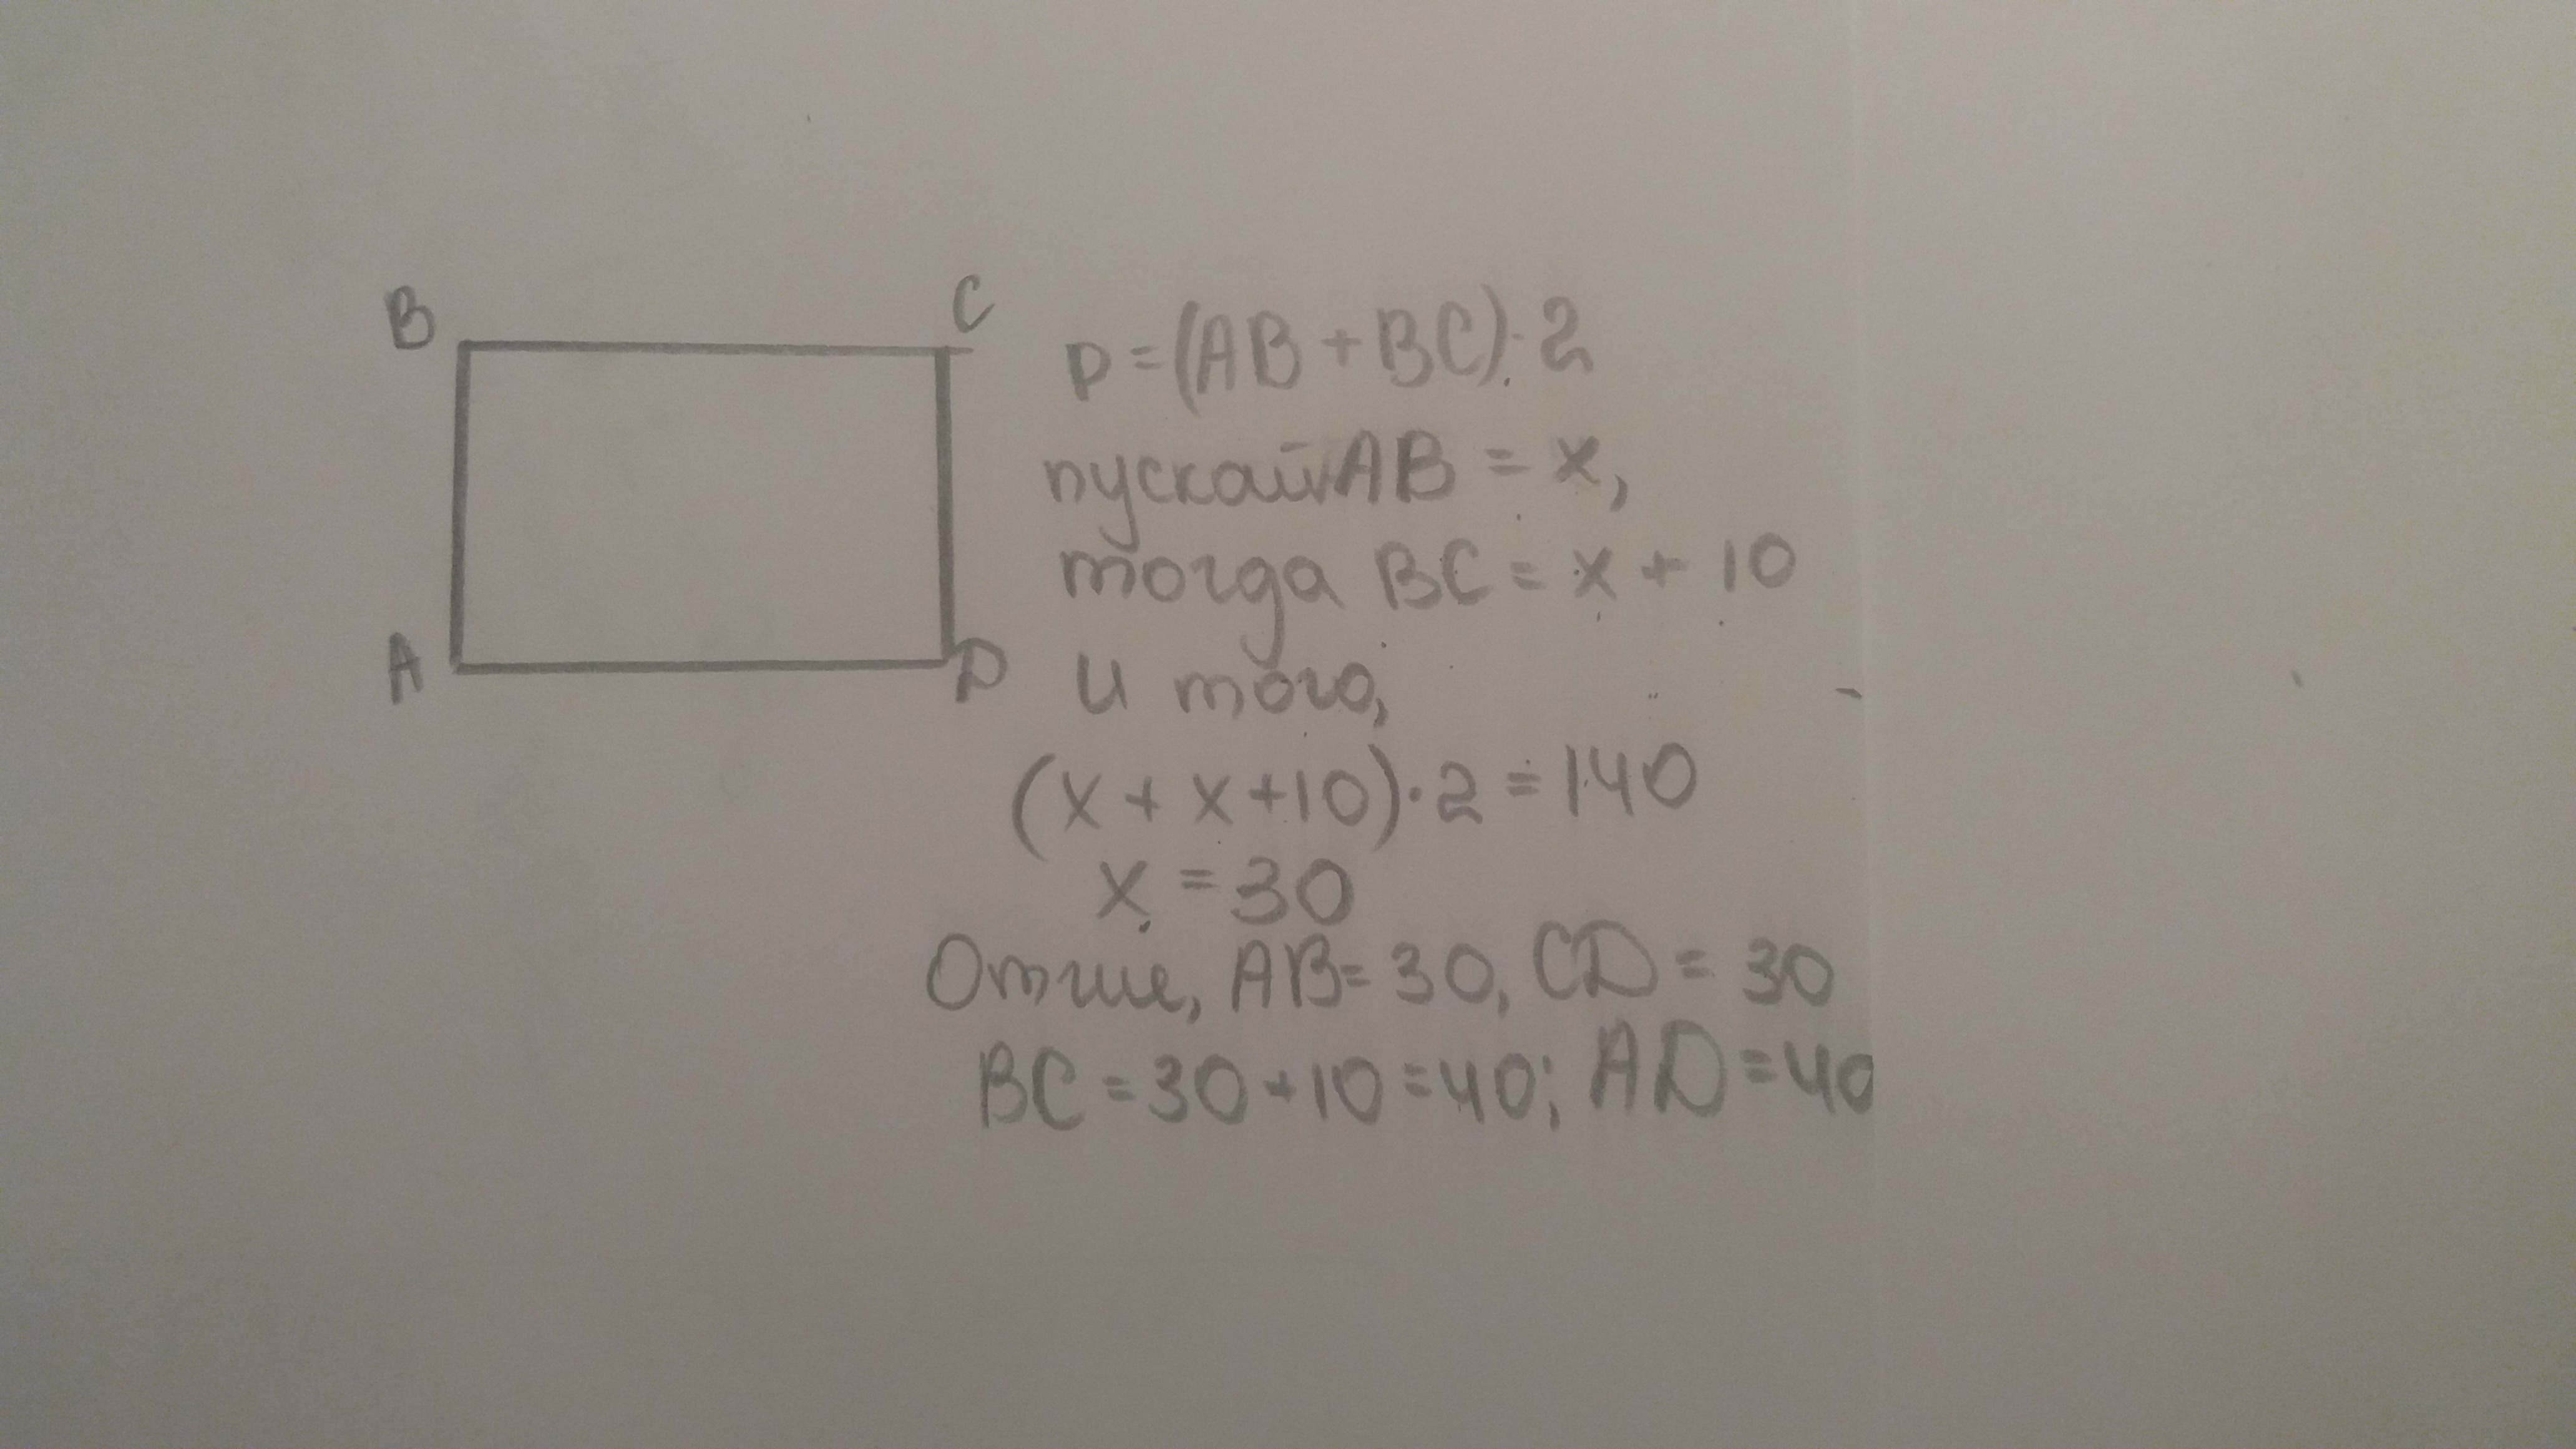 B C
A D
P=(AB+BC)·2
пускай AB = x,
тогда BC = x + 10
И того,
(x + x+10)·2 = 140
x = 30
AB= 30, CD = 30
BC = 30+10=40; AD=40